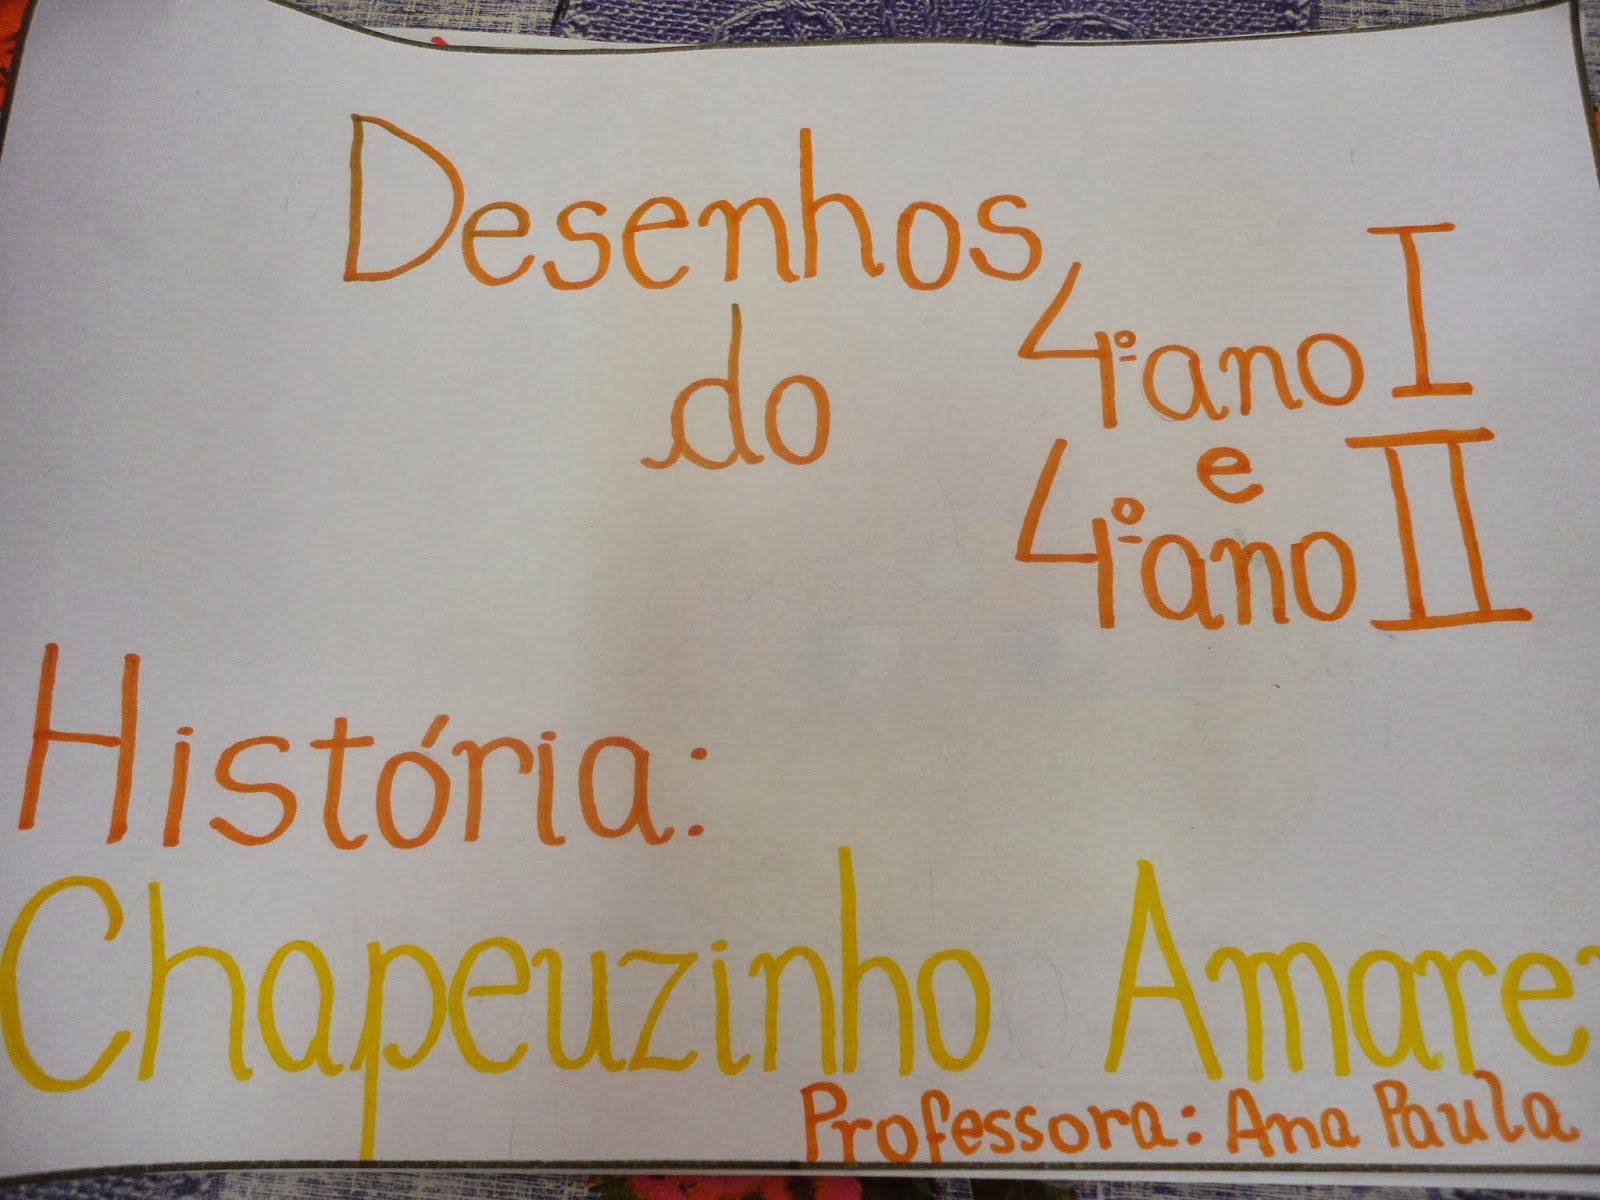 Desenhos
do
4º ano I
e
4º ano II
História:
Chapeuzinho Amare
Professora: Ana Paula